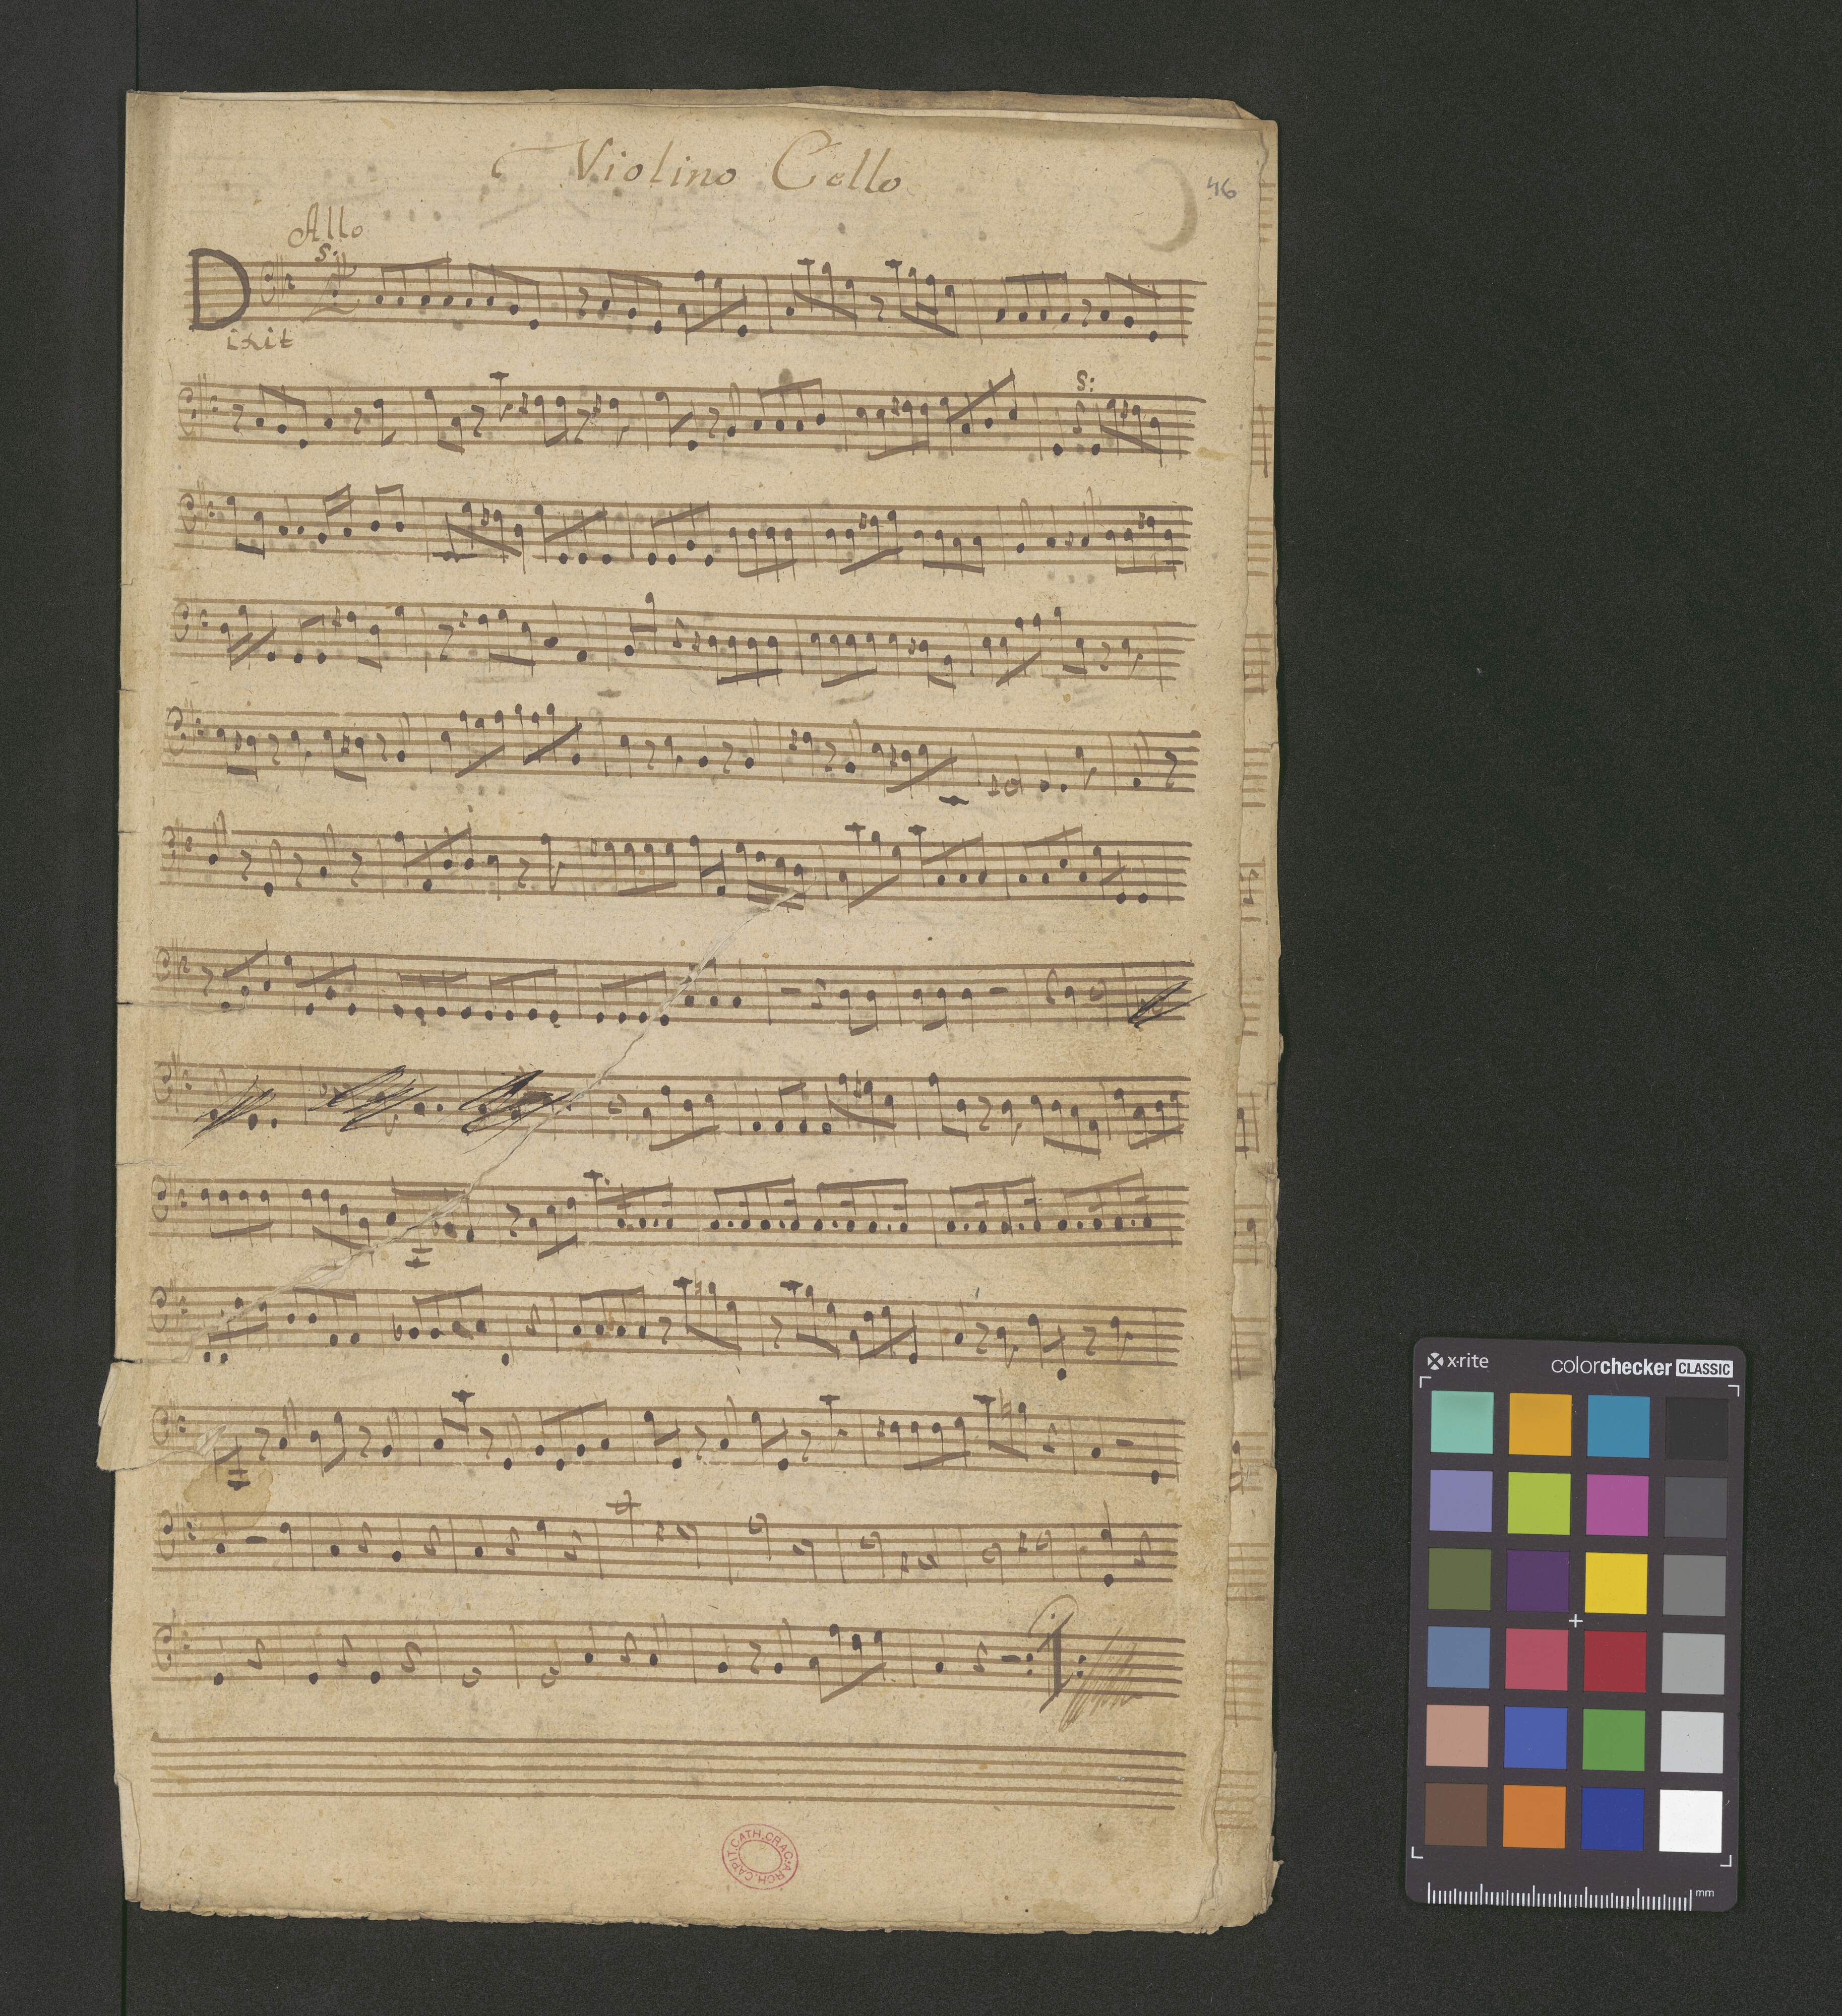 Violino Cello
46
Allo
S:
Dixit
S:
CAPIT. CATH. CRAC. ARCH.
x·rite
colorchecker CLASSIC
mm